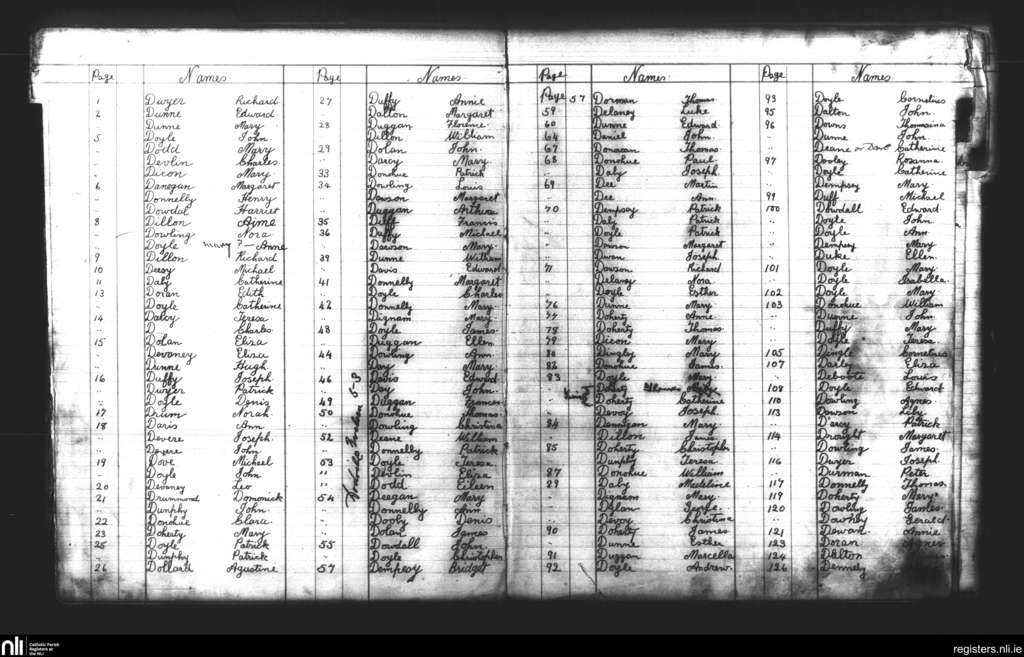 Page Names Page Names
1 Dwyer Richard
2 Dunne Edward
.. Dunne Mary
5 Doyle John
.. Dodd Mary
.. Devlin Charles
.. Dixon Mary
6 Danegan Margaret
.. Donnelly Henry
.. Dowdal Harriet
8 Dillon Aime
.. Dowling Nora
.. Doyle mary ? Anne
9 Dillon Richard
10 Deesy Michael
11 Daly Catherine
13 Doran Edith
.. Doyle Catherine
14 Daley Teresa
.. D Charles
15 Dolan Eliza
.. Devaney Eliza
.. Dunne Hugh
16 Duffy Joseph
.. Dwyer Patrick
.. Doyle Denis
17 Drum Norah
18 Davis Ann
.. Devere Joseph
.. Devere John
19 Dove Michael
.. Doyle John
20 Devaney Leo
21 Drummond Domonick
.. Dunphy John
22 Donohue Clara
23 Doherty Mary
25 Doyle Patrick
.. Dunphy Patrick
26 Dollard Agustine
27 Duffy Annie
.. Dalton Margaret
28 Duggan Florence
.. Dillon William
29 Dolan John
.. Darcy Mary
33 Donohue Patrick
34 Dowling Louis
.. Dawson Margaret
.. Duggan
35 Duff Francis
36 Duffy Michael
.. Dawson Mary
39 Dunne William
.. Davis Edward
41 Donnelly Margaret
.. Doyle Charles
42 Donnelly Mary
.. Dignam Mary
48 Doyle James
.. Duggan Ellen
44 Dowling Ann
.. Day Mary
46 Davis Edward
.. Day John
49 Duggan Frances
50 Donohue Thomas
.. Dowling Christina
52 Deane William
.. Donnelly Patrick
53 Doyle Teresa
" Devlin Eliza
" Dodd Eileen
54 Deegan Mary
.. Donnelly Ann
.. Dooly Denis
.. Dolan James
55 Dowdall John
.. Doyle Christopher
57 Dempesy Bridget
Page Names Page Names
Page 57 Dorman Thomas
59 Delaney Luke
60 Dunne Edward
64 Daniel John
67 Donovan Thomas
68 Donohue Paul
.. Daly Joseph
69 Dee Martin
.. Dee Ann
70 Dempsey Patrick
.. Daly Patrick
.. Doyle Patrick
.. Dowson Margaret
.. Dwan Joseph
71 Dowson Richard
.. Delaney Nora
.. Doyle Esther
76 Dunne Mary
77 Doherty Anne
78 Doherty Thomas
79 Dixon Mary
80 Dingley Mary
82 Donohue James
83 Doyle Mary
.. Doherty Thomas
.. Doherty Catherine
.. Devoy Joseph
84 Dannigan Mary
.. Dillon James
85 Doherty Christopher
.. Dunphy Teresa
87 Donohue William
89 Daly Madeline
.. Dignam Mary
.. Dolan
.. Devoy Christina
90 Doherty James
.. Dunne Esther
91 Duggan Marcella
92 Doyle Andrew
93 Doyle Cornetius
95 Dalton John
96 Downs Thomasina
.. Dunne John
.. Deane or Catherine
97 Dooley Rosanna
.. Doyle Catherine
.. Dempsey Mary
99 Duff Michael
100 Dowdall Edward
.. Doyle John
.. Doyle Ann
.. Dempsey Mary
.. Duke Ellen
101 Doyle Mary
.. Doyle Isabella
102 Doyle Mary
103 Donohue William
.. Dunne John
.. Duffy Mary
.. Doyle Teresa
105 Dingle Cornetius
107 Darley Eliza
.. Louis
108 Doyle Edward
110 Dowling Agnes
113 Dowson Lily
.. D'arcy Patrick
114 Drought Margaret
.. Dowling James
116 Dwyer Joseph
.. Durman Peter
117 Donnelly Thomas
119 Doherty Mary
120 Dowley James
.. Gerald
121 Dewan Annie
123 Doran Agnes
124 Dalton
126 Dennely
nli Catholic Parish Registers at the NLI
registers.nli.ie